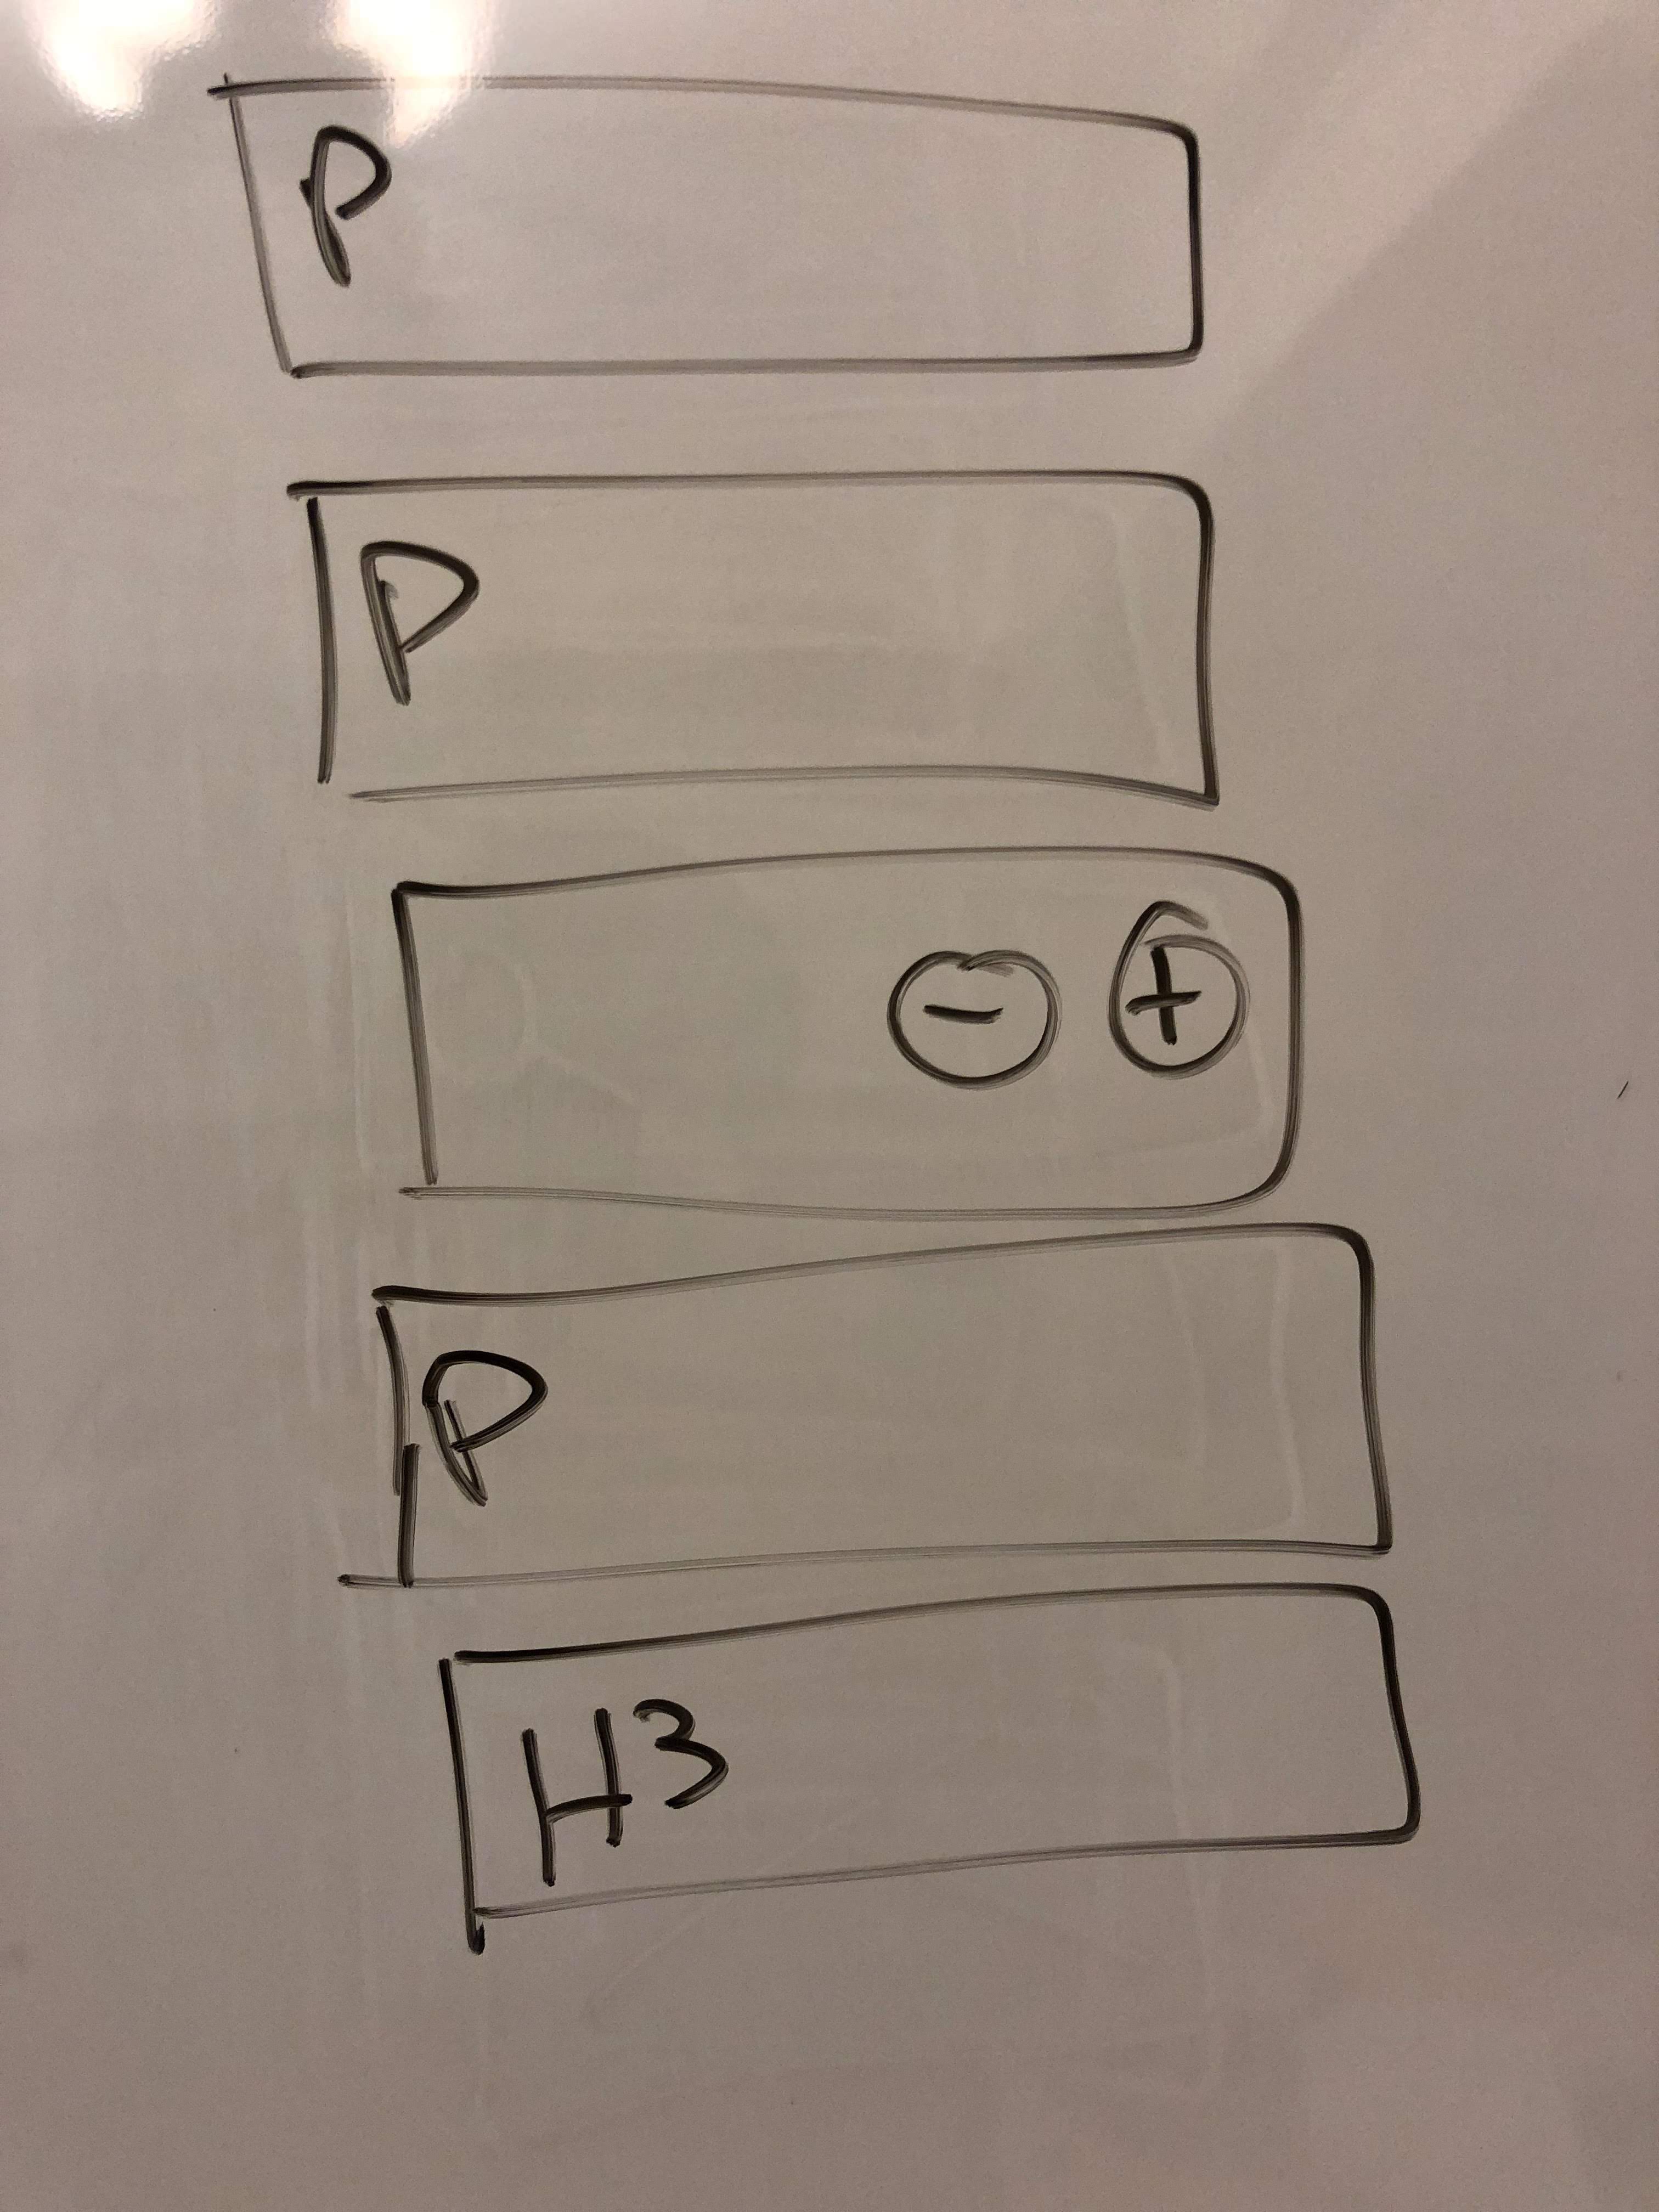 P
P
- +
P
H3